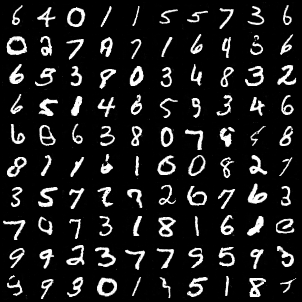 6 4 0 1 1 5 5 7 3 6
0 2 7 A 7 1 6 4 3 6
6 5 3 8 0 3 4 8 3 2
6 5 1 4 8 5 9 3 4 6
6 8 6 3 8 0 7 9 8
8 1 1 6 1 0 0 8 2 7
3 5 7 2 7 2 6 7 6 3
7 9 7 3 1 8 1 6 8 2
9 9 2 3 7 7 9 5 9 3
9 9 3 0 1 5 1 8 7